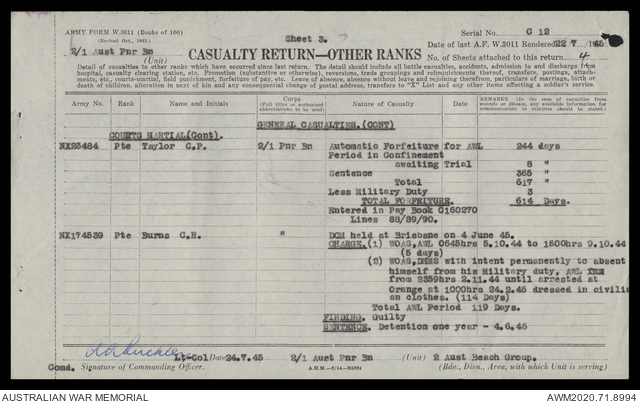 ARMY FORM W.3011 (Books of 100)
(Revised Oct., 1942)
Sheet 3.
Serial No. C 12
2/1 Aust Pnr Bn
(Unit)
Date of last A.F. W.3011 Rendered 22/7/1945
CASUALTY RETURN—OTHER RANKS
No. of Sheets attached to this return 4
Detail of casualties to other ranks which have occurred since last return. The detail should include all battle casualties, accidents, admission to and discharge from
hospital, casualty clearing station, etc. Promotion (substantive or otherwise), reversions, trade groupings and relinquishments thereof, transfers, postings, attach-
ments, etc., courts-martial, field punishment, forfeiture of pay, etc. Leave of absence, absence without leave and rejoining therefrom, particulars of marriage, birth or
death of children, alteration in next of kin and any consequential change of postal address, transfers to "X" List and any other items affecting a soldier's service.
Army No. Rank Name and Initials Corps (Full title or authorized abbreviations to be used) Nature of Casualty REMARKS. (In the case of casualties from wounds or disease, any available information for communication to relatives should be stated.)
GENERAL CASUALTIES.(CONT)
COURTS MARTIAL(Cont).
NX23484 Pte Taylor C.P. 2/1 Pnr Bn Automatic Forfeiture for AWL 244 days
Period in Confinement
awaiting Trial 8 "
Sentence 365 "
Total 617 "
Less Military Duty 3
TOTAL FORFEITURE. 614 Days.
Entered in Pay Book C160270
Lines 88/89/90.
NX174539 Pte Burns C.H. " DCM held at Brisbane on 4 June 45.
CHARGE.(1) WOAS,AWL 0645hrs 5.10.44 to 1500hrs 9.10.44
(5 days)
(2) WOAS,DHMS with intent permanently to absent
himself from his Military duty, AWL
from 2359hrs 2.11.44 until arrested at
Orange at 1000hrs 24.2.45 dressed in civili
an clothes. (114 Days)
Total AWL Period 119 Days.
FINDING. Guilty
SENTENCE. Detention one year - 4.6.45
Lt-Col Date 24.7.45 2/1 Aust Pnr Bn (Unit) 2 Aust Beach Group.
Comd. Signature of Commanding Officer. A.H.M.—2/44—
(Bde., Divn., Area, with which Unit is serving)
AUSTRALIAN WAR MEMORIAL AWM2020.71.8994